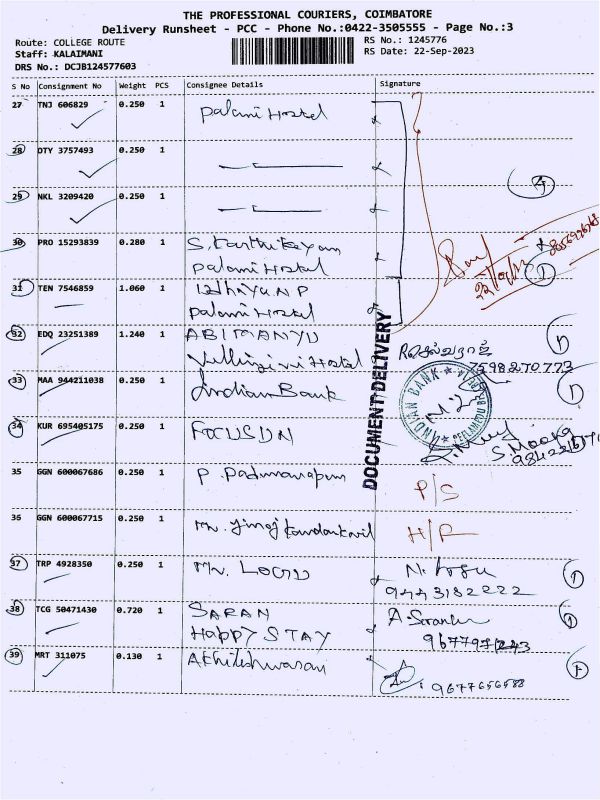 THE PROFESSIONAL COURIERS, COIMBATORE
Delivery Runsheet - PCC - Phone No.:0422-3505555 - Page No.:3
Route: COLLEGE ROUTE
RS No.: 1245776
Staff: KALAIMANI
RS Date: 22-Sep-2023
DRS No.: DCJB124577603
S No Consignment No Weight PCS Consignee Details Signature
27 TNJ 606829 0.250 1 Palani Hostel
28 OTY 3757493 0.250 1
29 NKL 3209420 0.250 1
30 PRO 15293839 0.280 1 S. Karthikeyan
Palani Hostel
31 TEN 7546859 1.060 1
Palani Hostel
32 EDQ 23251389 1.240 1 ABIMANYU
Hostel
செல்வராஜ்
DOCUMENT DELIVERY
33 MAA 944211038 0.250 1 Indian Bank
INDIAN BANK
34 KUR 695405175 0.250 1 FOCUS
35 GGN 600067686 0.250 1 P. P/S
36 GGN 600067715 0.250 1 Mr. H/R
37 TRP 4928350 0.250 1 Mr. LOGU
9443182222
38 TCG 50471430 0.720 1 SARAN
Happy STAY
39 MRT 311075 0.130 1 Akhileshwaran
9677656588